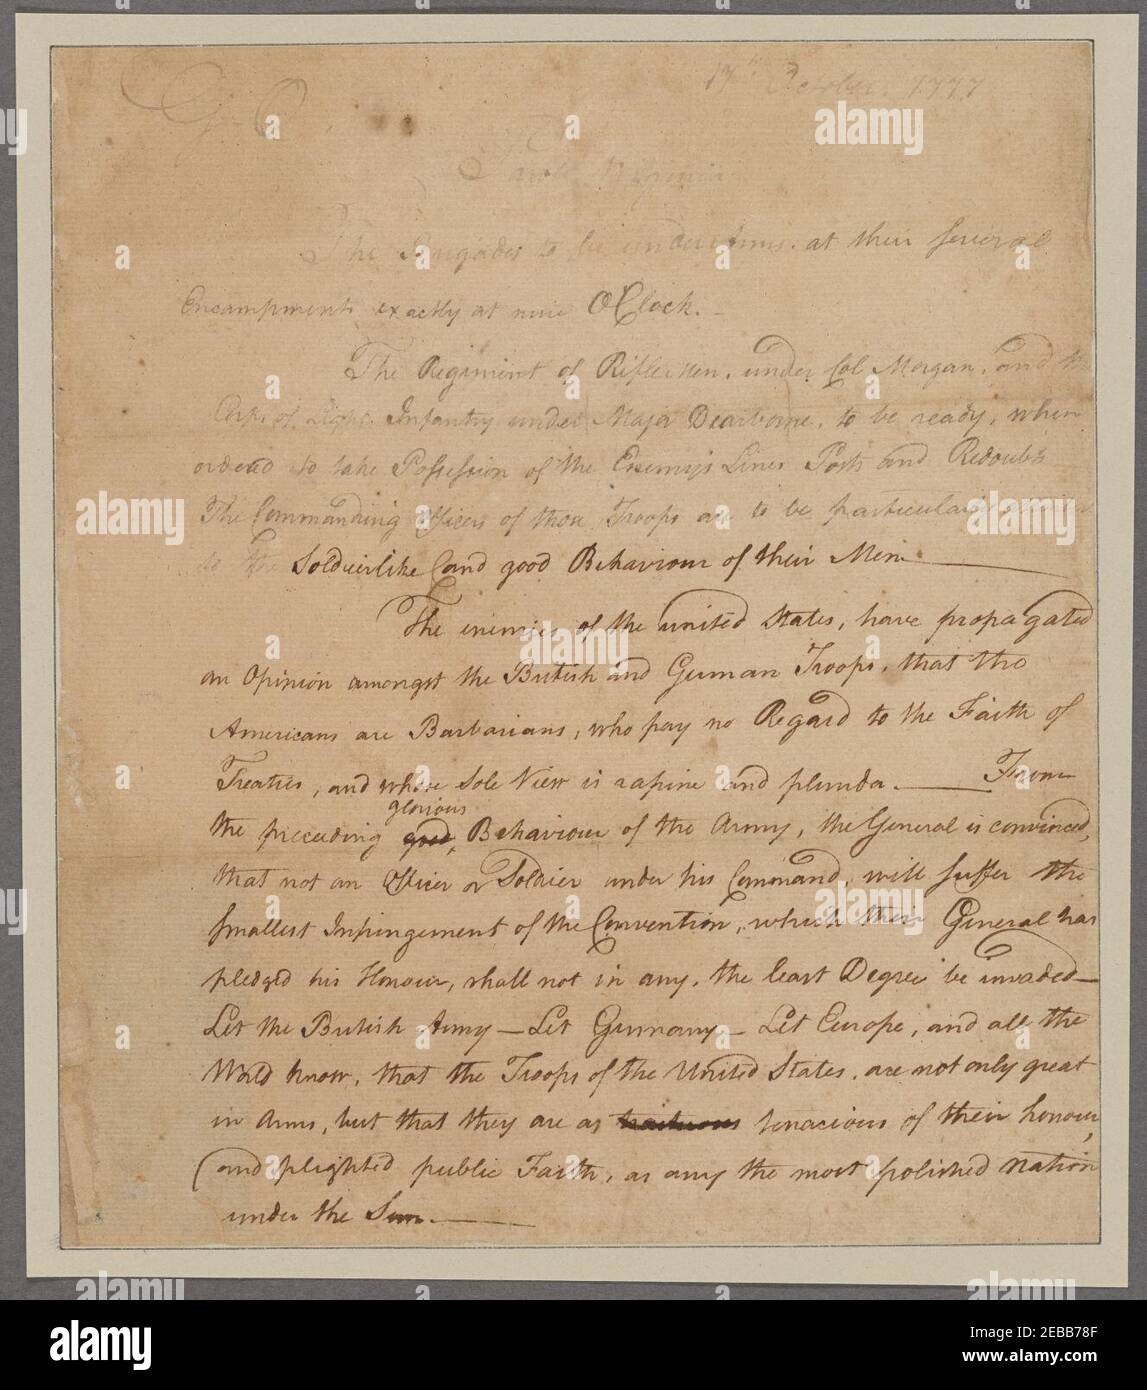 G. O. 17th October 1777
Parole Virginia
The Brigades to be under Arms. at their several
Encampments exactly at nine OClock. –
The Regiment of Riflemen, under Col Morgan, and the
Corps of Light. Infantry under Major Dearborne, to be ready, when
ordered to take Possession of the Enemys Lines Posts and Redoubts
The Commanding Officers of those Troops are to be particularly
to the Soldierlike and good Behaviour of their Men
The enemies of the united States, have propagated
an Opinion amongst the British and German Troops, that the
Americans are Barbarians, who pay no Regard to the Faith of
Treaties, and whose Sole View is rapine and plunder. — From
glorious
the preceeding good, Behaviour of the Army, the General is convinced,
that not an Officer or Soldier under his Command, will suffer the
smallest Infringement of the Convention, which their General has
pledged his Honour, shall not in any, the least Degree be invaded –
Let the British Army – Let Germany – Let Europe, and all the
World know, that the Troops of the United States, are not only great
in Arms, but that they are as tenacious of their honour,
and plighted public Faith, as any the most polished nation
under the Sun. —
alamy
Image ID: 2EBB78F
www.alamy.com